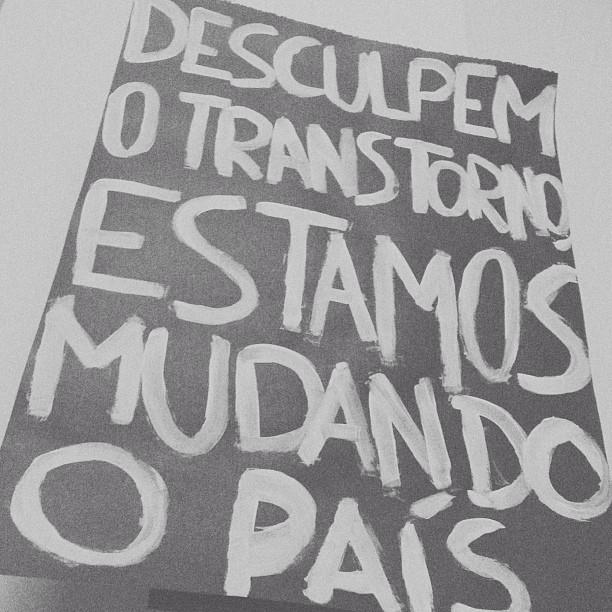 DESCULPEM
O TRANSTORNO,
ESTAMOS
MUDANDO
O PAÍS